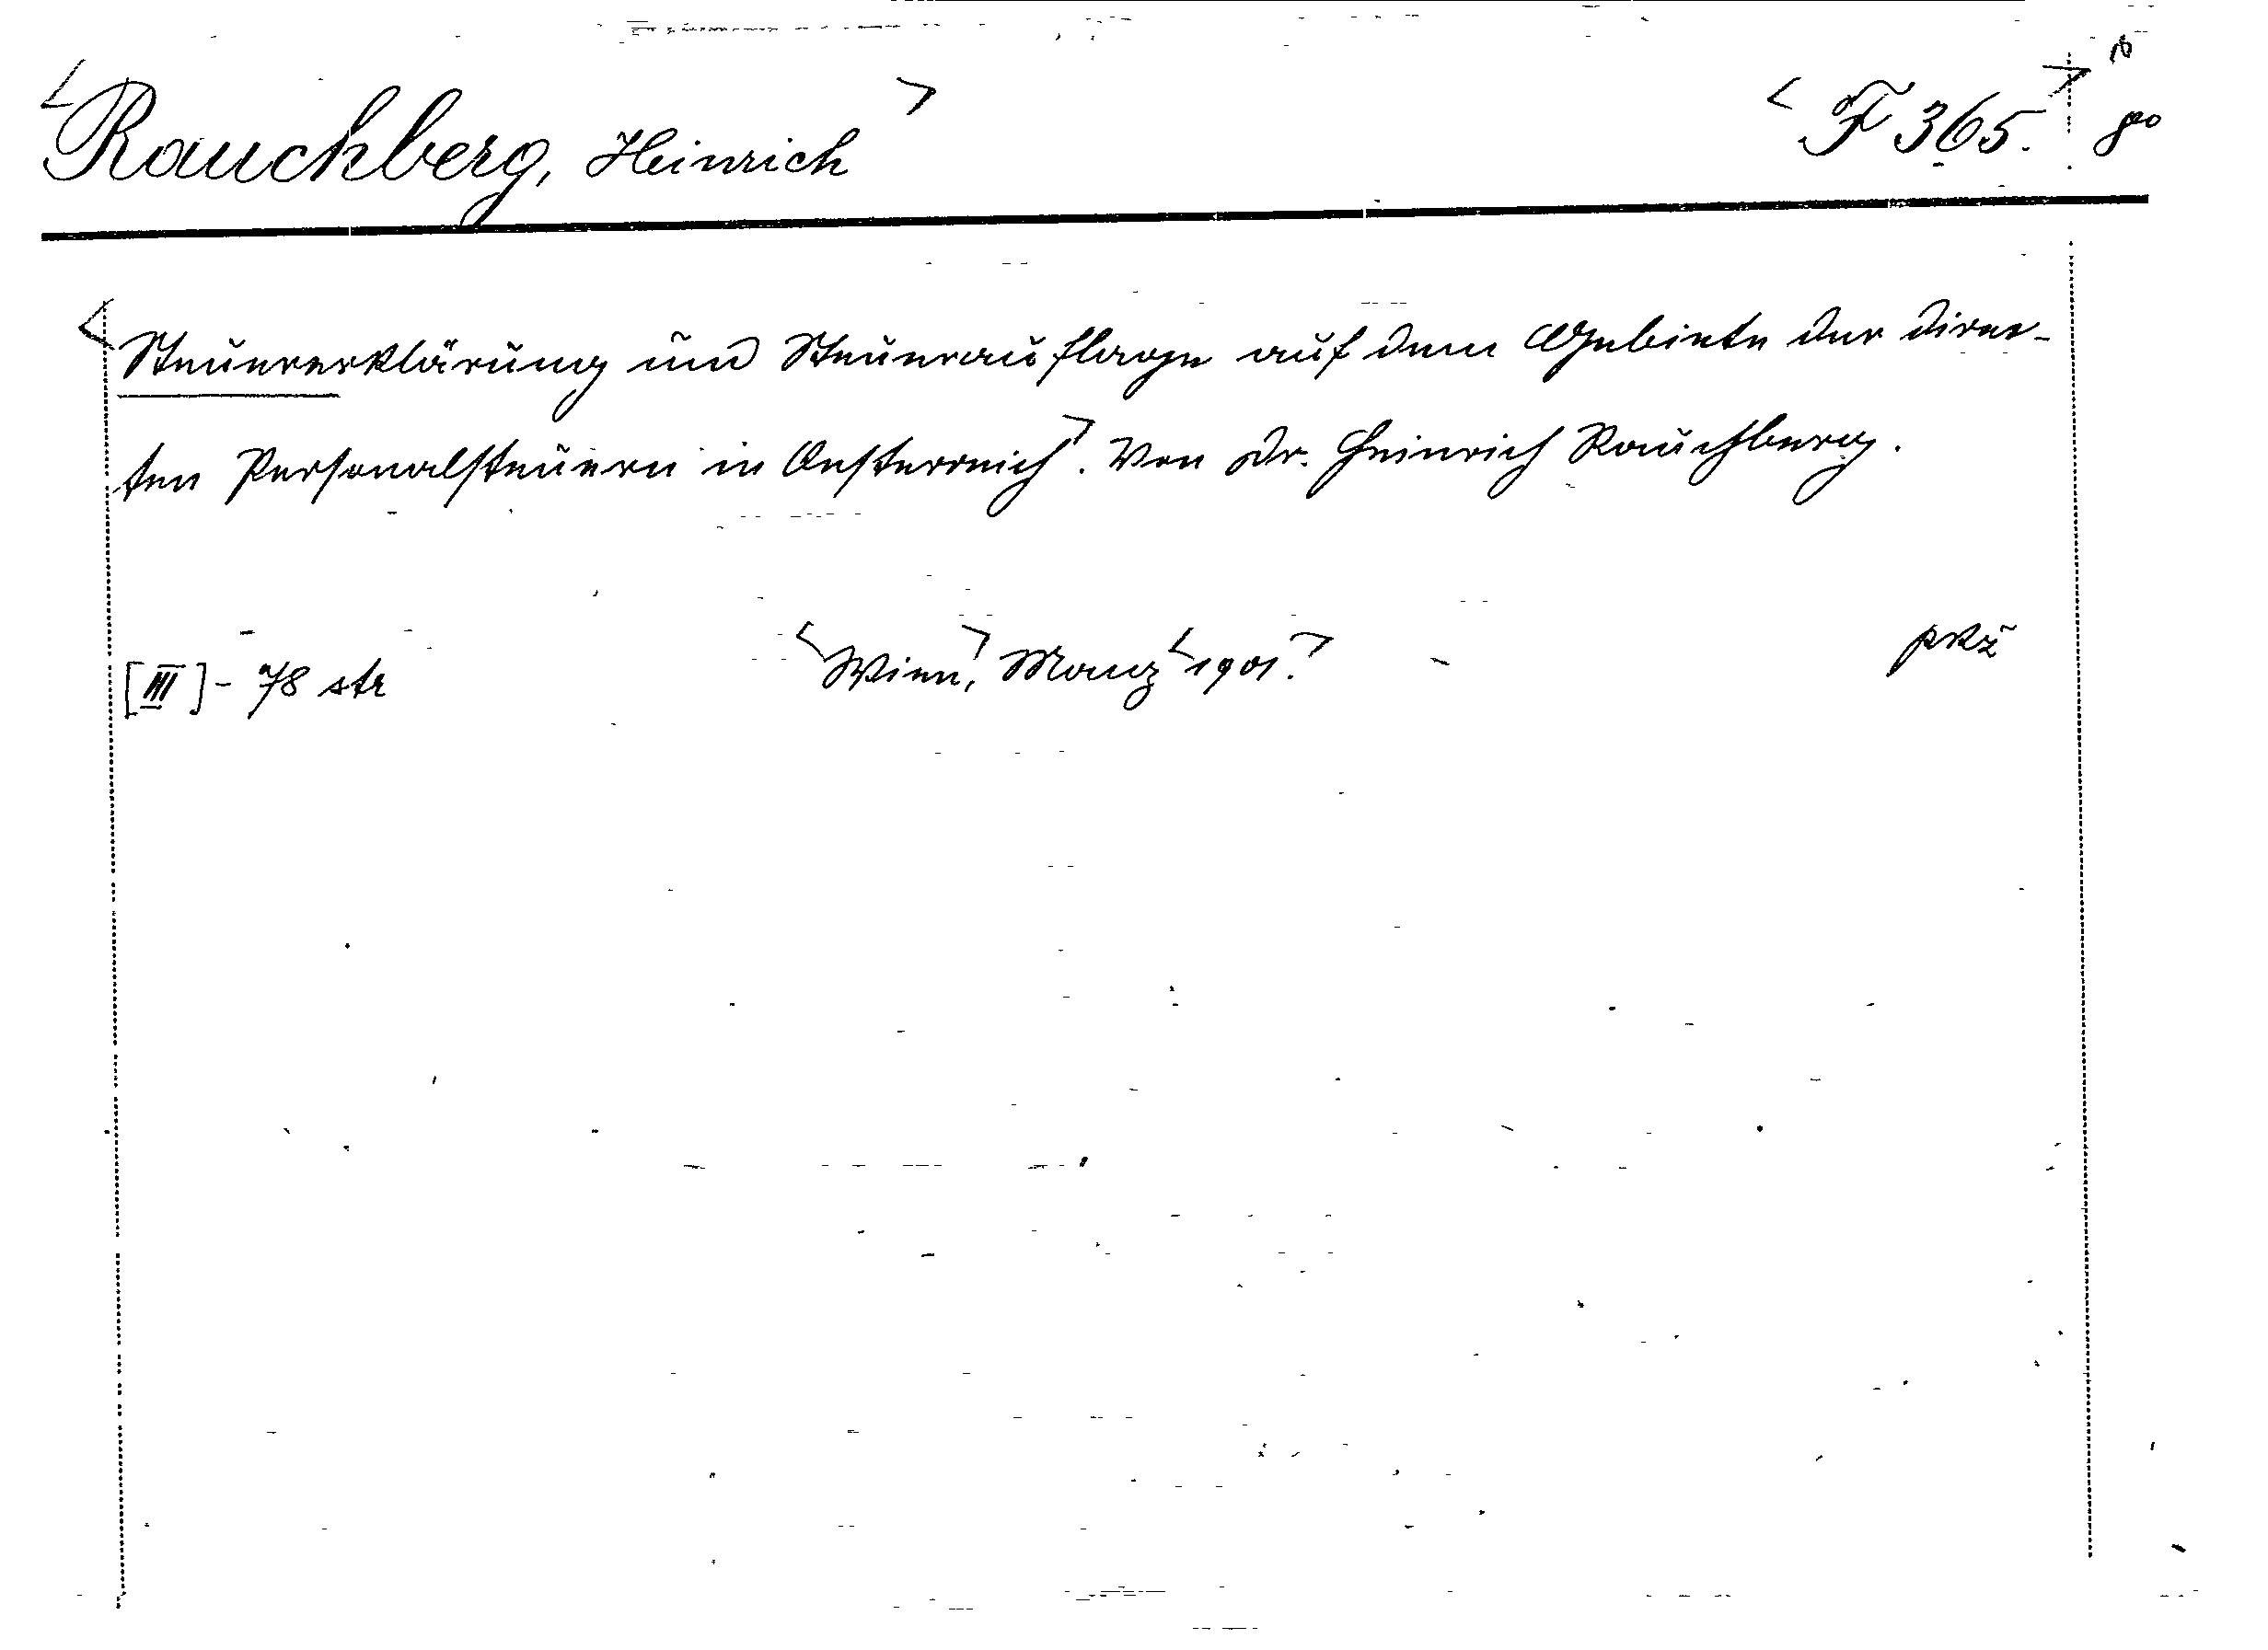 <Rauchberg, Heinrich> <F 365.> 8º
<Steuererklärung und Steuerauflage auf dem Gebiete der direc-
ten Personalsteuern in Oesterreich>. Von Dr. Heinrich Rauchberg.
[III] - 78 str <Wien,> Manz <1901.>